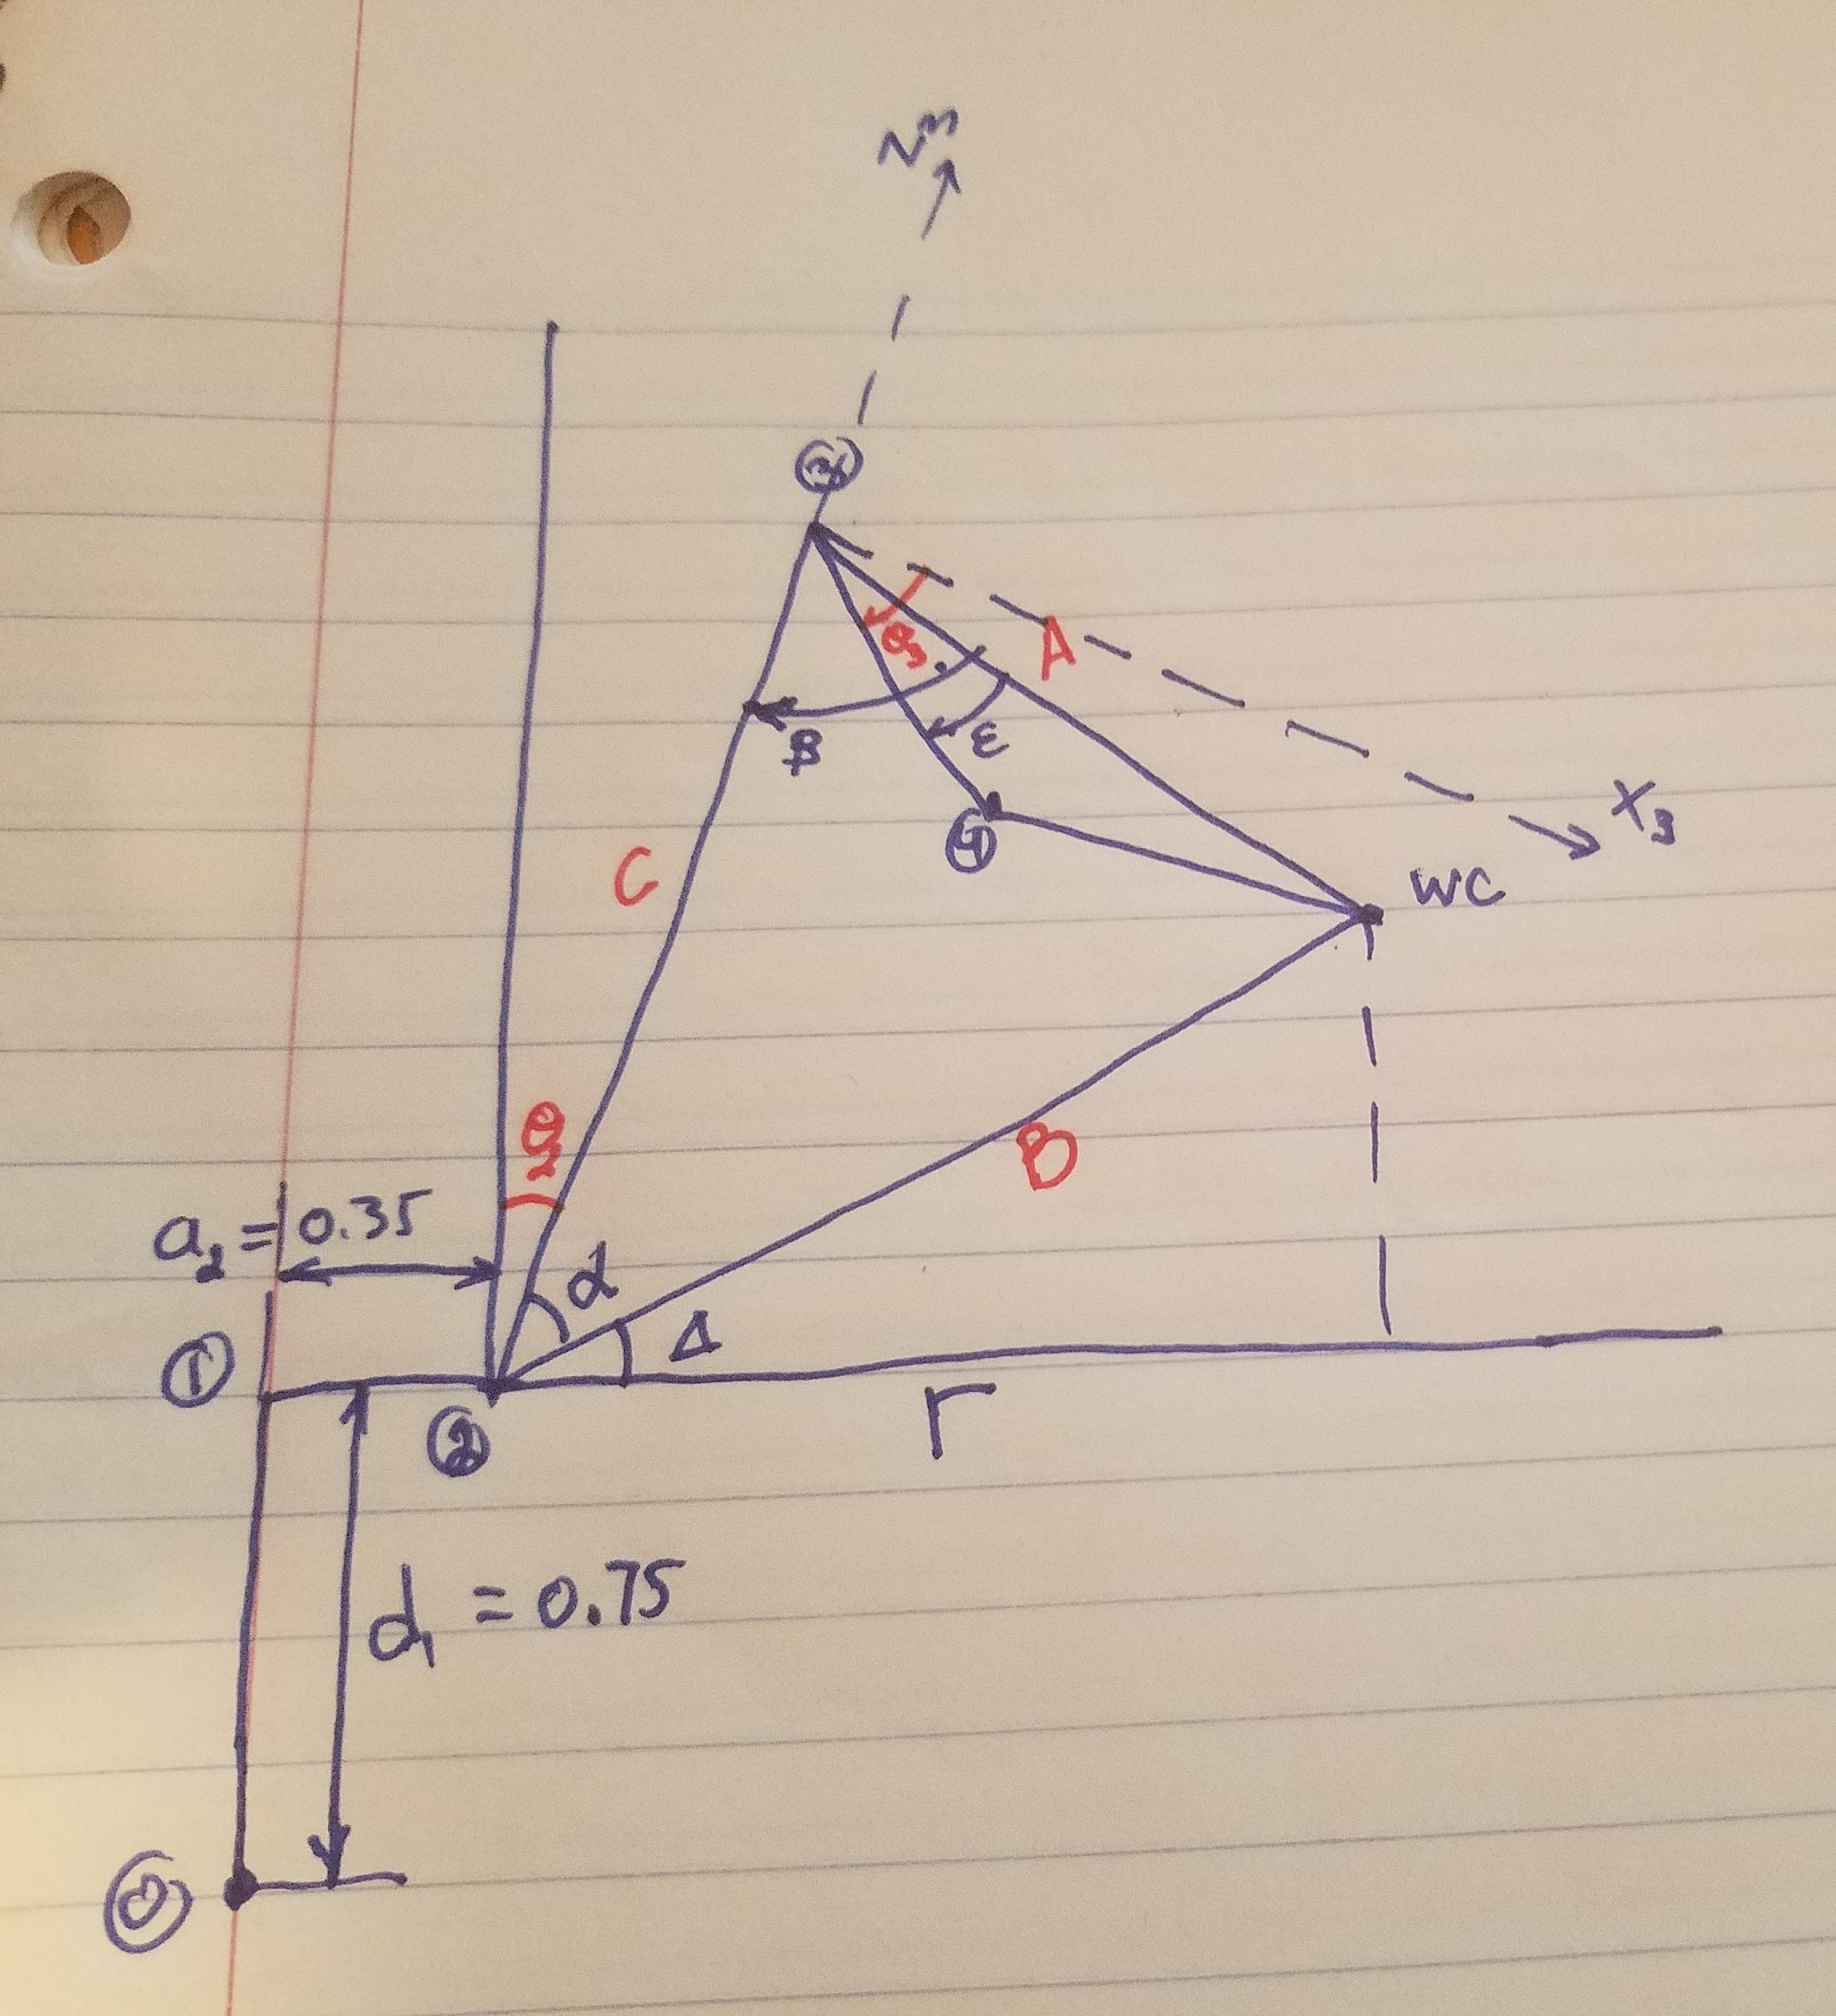 ③
A
θ₃
β
ε
X₃
④
WC
C
θ₂
B
a₂ = 0.35
α
Δ
①
②
r
d₁ = 0.75
⓪